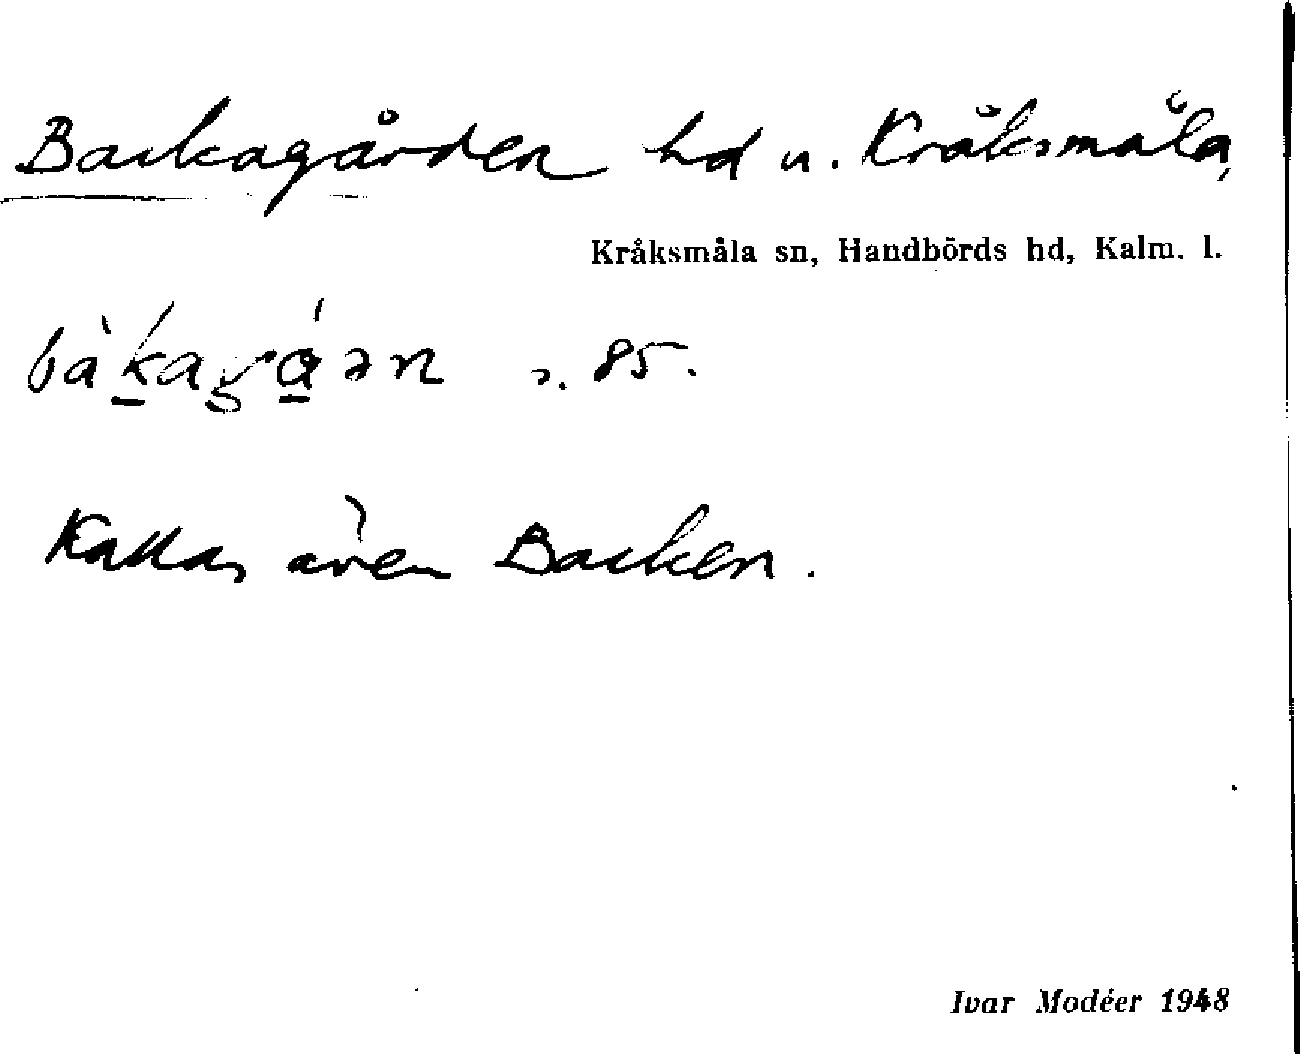 Backagården hd u. Kråksmåla,
Kråksmåla sn, Handbörds hd, Kalm. l.
s. 85.
Kallas även Backen.
Ivar Modéer 1948